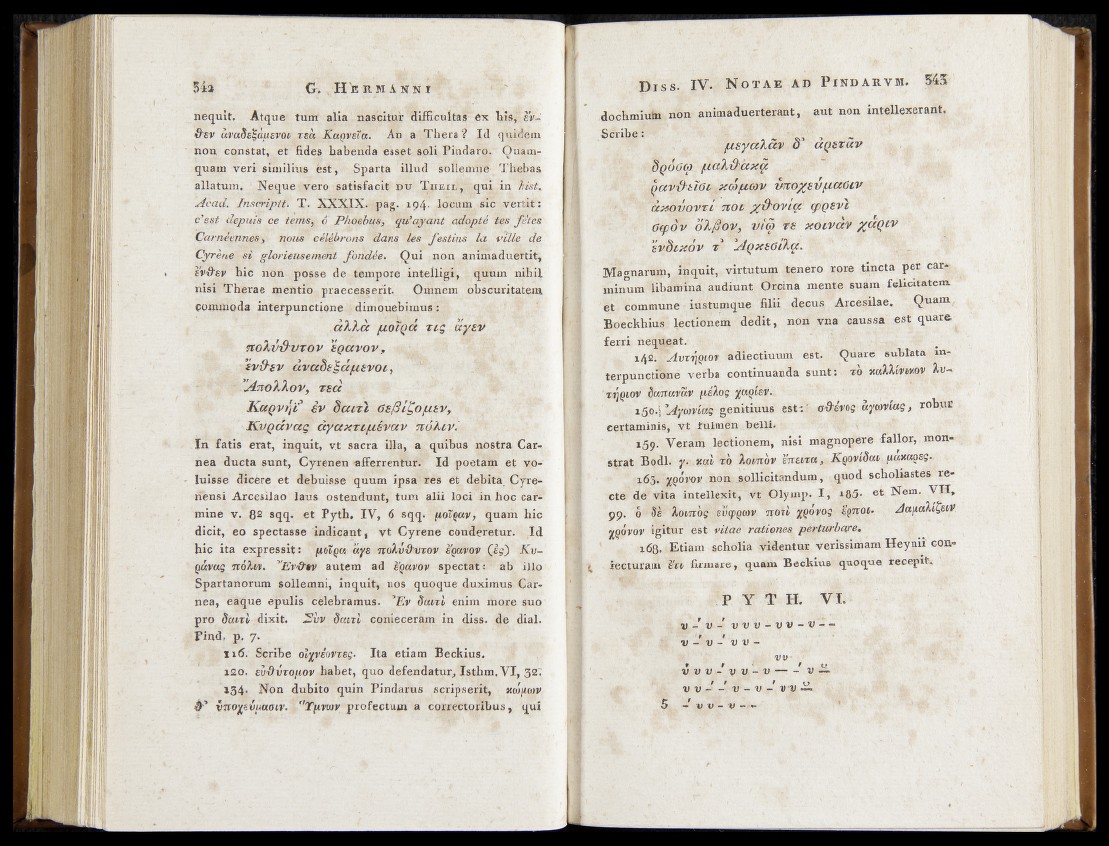 342 G. HERMANNI
nequit. Atque tum alia nascitur difficultas ex his, ἔν-
θεν ἀναδεξάμενοι τεὰ Καρνεῖα. An a Thera? Id quidem
non constat, et fides habenda esset soli Pindaro. Quam-
quam veri similius est, Sparta illud sollemne Thebas
allatum. Neque vero satisfacit DU THEIL, qui in hist.
Acad. Inscriptt. T. XXXIX. pag. 194. locum sic vertit:
c'est depuis ce tems, ó Phoebus, qu'ayant adopté tes fêtes
Carnéennes, nous célébrons dans les festins la ville de
Cyrène si glorieusement fondée. Qui non animaduertit,
ἔνθεν hic non posse de tempore intelligi, quum nihil
nisi Therae mentio praecesserit. Omnem obscuritatem
commoda interpunctione dimouebimus:
ἀλλὰ μοῖρά τις ἄγεν
πολύθυτον ἔρανον,
ἔνθεν ἀναδεξάμενοι,
Ἄπολλον, τεὰ
Καρνήϊ' ἐν δαιτὶ σεβίζομεν,
Κυράνας ἀγακτιμέναν πόλιν.
In fatis erat, inquit, vt sacra illa, a quibus nostra Car-
nea ducta sunt, Cyrenen afferrentur. Id poetam et vo-
luisse dicere et debuisse quum ipsa res et debita Cyre-
nensi Arcesilao laus ostendunt, tum alii loci in hoc car-
mine v. 82 sqq. et Pyth. IV, 6 sqq. μοῖραν, quam hic
dicit, eo spectasse indicant, vt Cyrene conderetur. Id
hic ita expressit: μοῖρα ἄγε πολύθυτον ἔρανον (ἐς) Κυ-
ράνας πόλιν. Ἔνθεν autem ad ἔρανον spectat: ab illo
Spartanorum sollemni, inquit, nos quoque duximus Car-
nea, eaque epulis celebramus. Ἐν δαιτὶ enim more suo
pro δαιτὶ dixit. Σὺν δαιτὶ conieceram in diss. de dial.
Pind. p. 7.
116. Scribe οἰχνέοντες. Ita etiam Beckius.
120. εὐθύτομον habet, quo defendatur, Isthm. VI, 32.
134. Non dubito quin Pindarus scripserit, κώμων
θ' ὑποχεύμασιν. Ὕμνων profectum a correctoribus, qui
DISS. IV. NOTAE AD PINDARVM. 343
dochmium non animaduerterant, aut non intellexerant.
Scribe:
μεγαλᾶν δ' ἀρετᾶν
δρόσῳ μαλθακᾷ
ῥανθεῖσι κώμων ὑποχεύμασιν
ἀκούοντί ποι χθονίᾳ φρενὶ
σφὸν ὄλβον, υἱῷ τε κοινὰν χάριν
ἔνδικόν τ' Ἀρκεσίλᾳ.
Magnarum, inquit, virtutum tenero rore tincta per car-
minum libamina audiunt Orcina mente suam felicitatem
et commune iustumque filii decus Arcesilae. Quam
Boeckhius lectionem dedit, non vna caussa est quare
ferri nequeat.
142. Λυτήριον adiectiuum est. Quare sublata in-
terpunctione verba continuanda sunt: τὸ καλλίνικον λυ-
τήριον δαπανᾶν μέλος χαρίεν.
150. Ἀγωνίας genitiuus est: σθένος ἀγωνίας, robur
certaminis, vt fulmen belli.
159. Veram lectionem, nisi magnopere fallor, mon-
strat Bodl. γ. καὶ τὸ λοιπὸν ἔπειτα, Κρονίδαι μάκαρες.
163. χρόνον non sollicitandum, quod scholiastes re-
cte de vita intellexit, vt Olymp. I, 185. et Nem. VII,
99. ὁ δὲ λοιπὸς εὔφρων ποτὶ χρόνος ἕρποι. Δαμαλίζειν
χρόνον igitur est vitae rationes perturbare.
168. Etiam scholia videntur verissimam Heynii con-
iecturam ἔτι firmare, quam Beckius quoque recepit.
PYTH. VI.
υ –́ υ –́ υ υ υ – υ υ – υ – –
υ –́ υ –́ υ υ –
υ υ
ύ υ υ –́ υ υ – υ — –́ υ –
υ υ –́ –́ υ – υ –́ υ υ –
5 –́ υ υ – υ – –